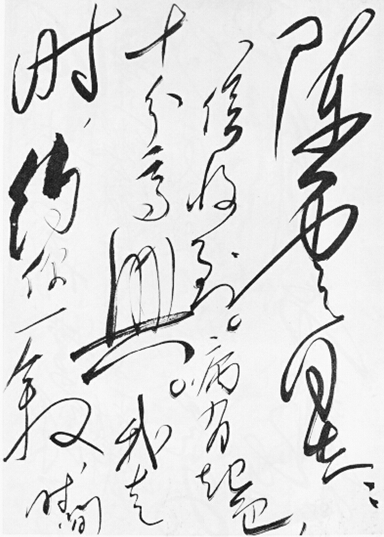 陈云同志:
信收到。病有起色,
十分高兴。我走
时,约你一叙,时间